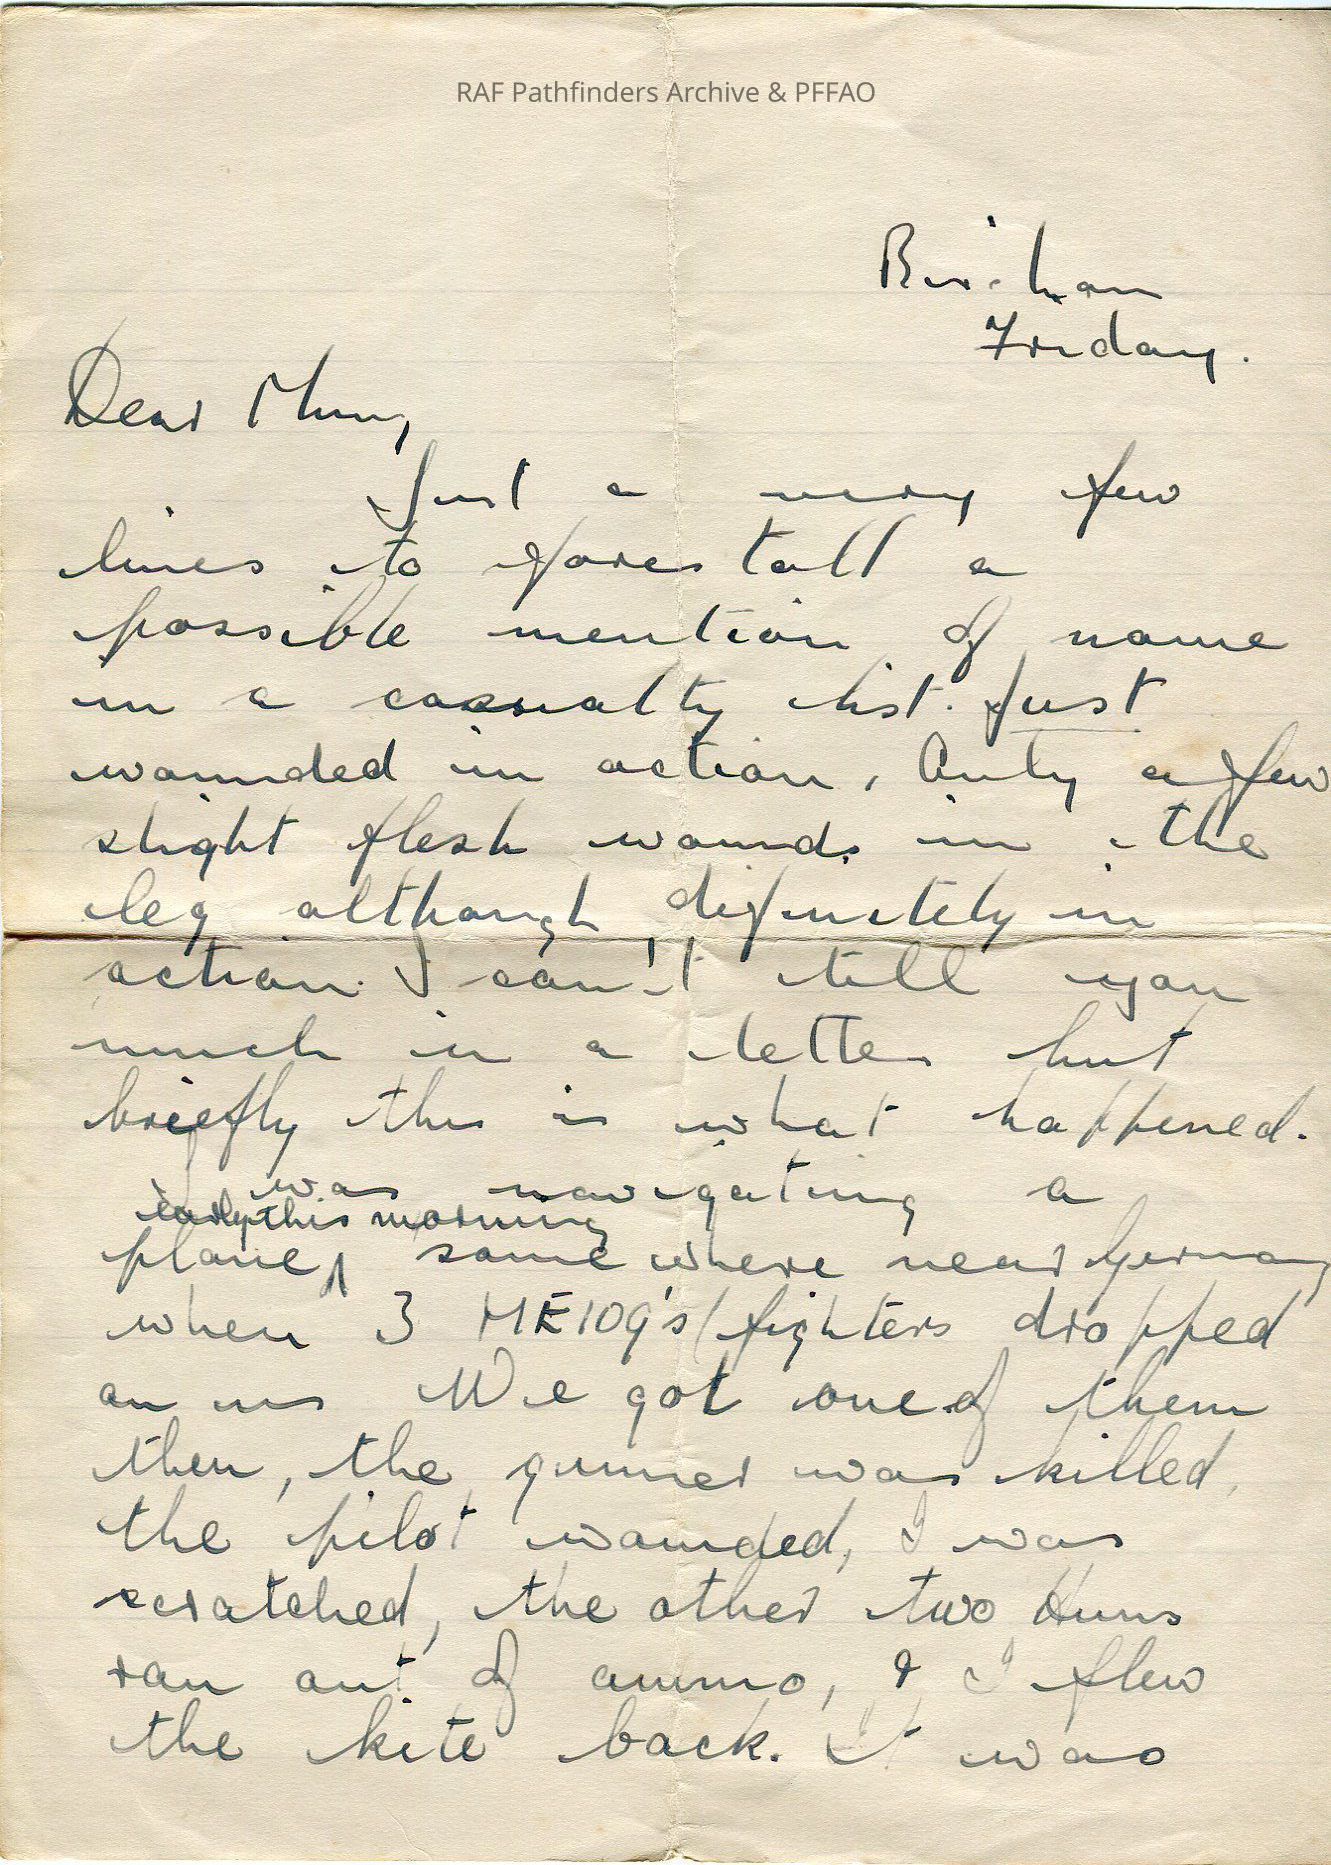 RAF Pathfinders Archive & PFFAO
Bircham
Friday.
Dear Mum,
Just a very few
lines to forestall a
possible mention of name
in a casualty list. Just
wounded in action. Only a few
slight flesh wounds in the
leg although definitely in
action. I can't tell you
much in a letter but
briefly this is what happened.
I was navigating a
early this morning
plane, somewhere near Germany
when 3 ME109's (fighters dropped
on us We got one of them
then, the gunner was killed,
the pilot wounded, I was
scratched, the other two Huns
ran out of ammo, & I flew
the kite back. It was